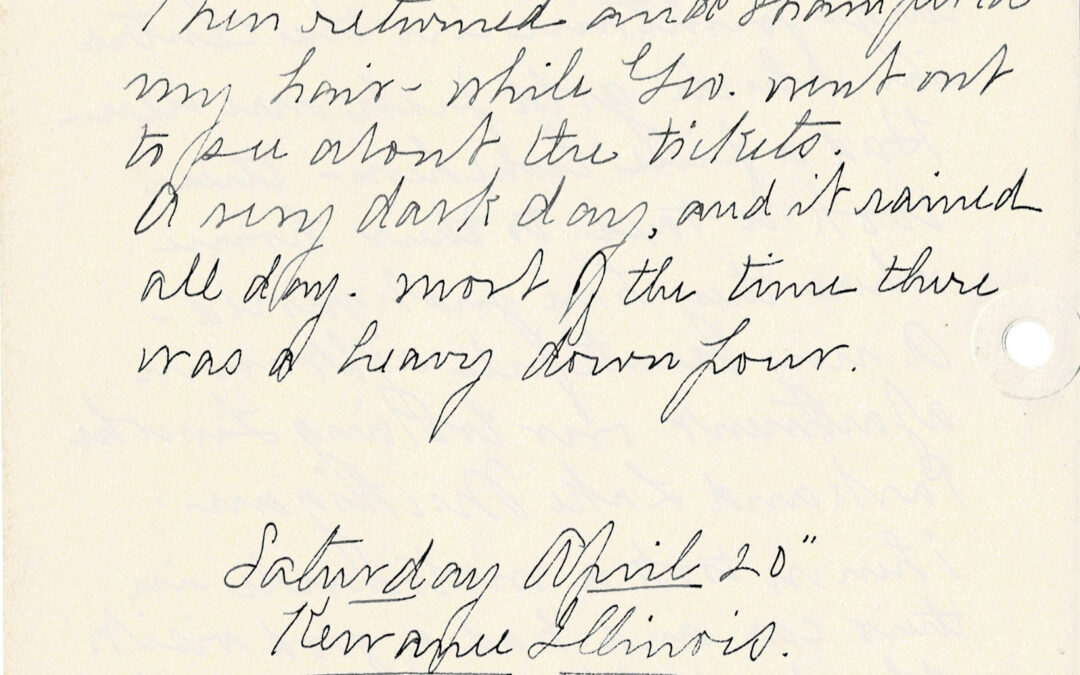 Then returned and shampooed
my hair - while Geo. went out
to see about the tickets.
A very dark day, and it rained
all day. most of the time there
was a heavy down pour.
Saturday April 20"
Kewanee Illinois.